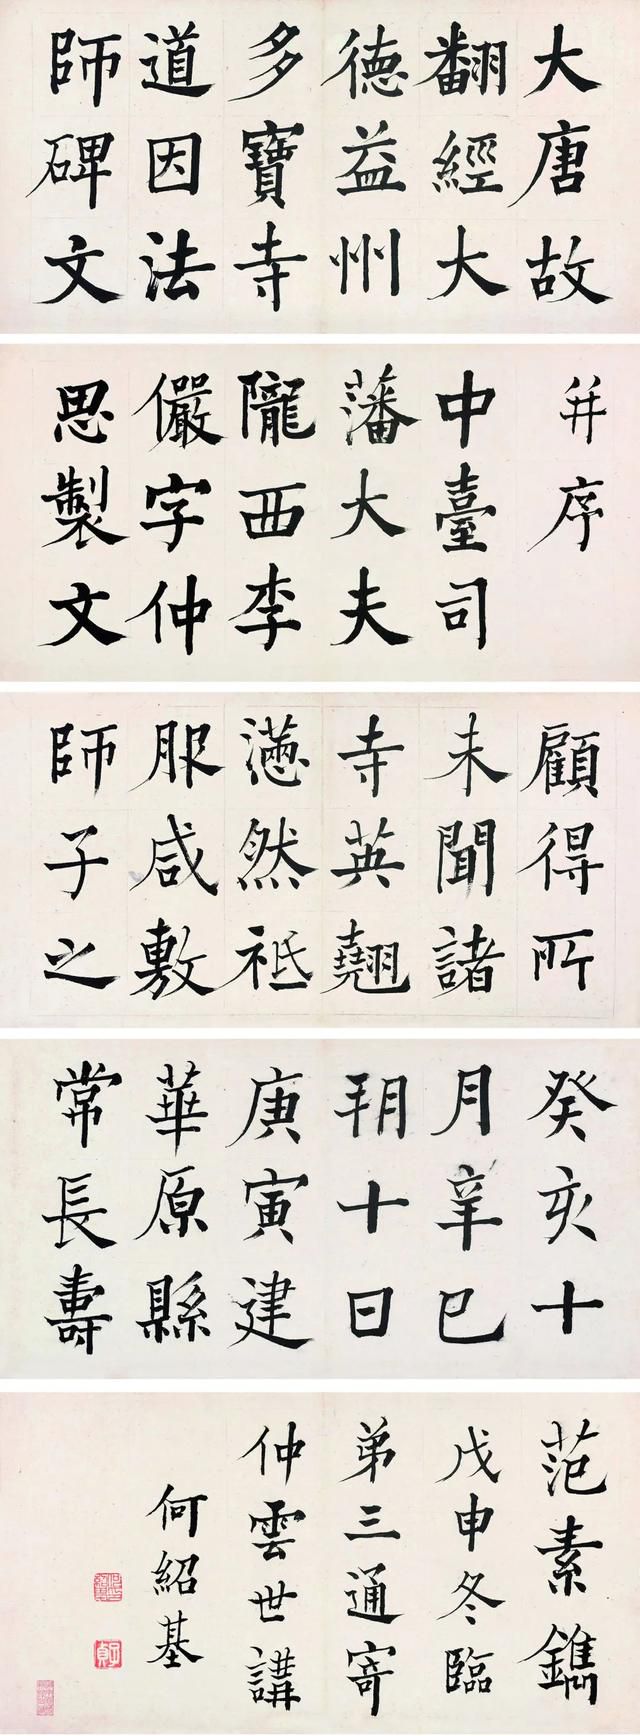 大唐故
翻經大
德益州
多寶寺
道因法
師碑文
并序
中臺司
藩大夫
隴西李
儼字仲
思製文
顧得所
未聞諸
寺英翹
懣然祗
服咸敷
師子之
癸亥十
月辛巳
朔十日
庚寅建
華原縣
常長壽
范素鐫
戊申冬臨
弟三通寄
仲雲世講
何紹基